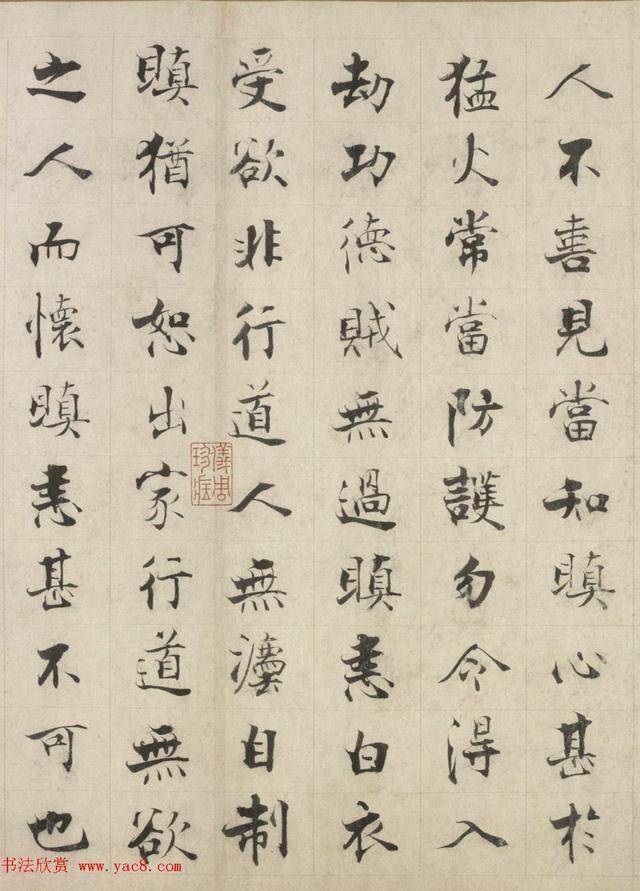 人不善見當知瞋心甚於
猛火常當防護勿令得入
劫功德賊無過瞋恚白衣
受欲非行道人無灋自制
瞋猶可恕出家行道無欲
之人而懷瞋恚甚不可也
儀周
珍藏
书法欣赏
www.yac8.com